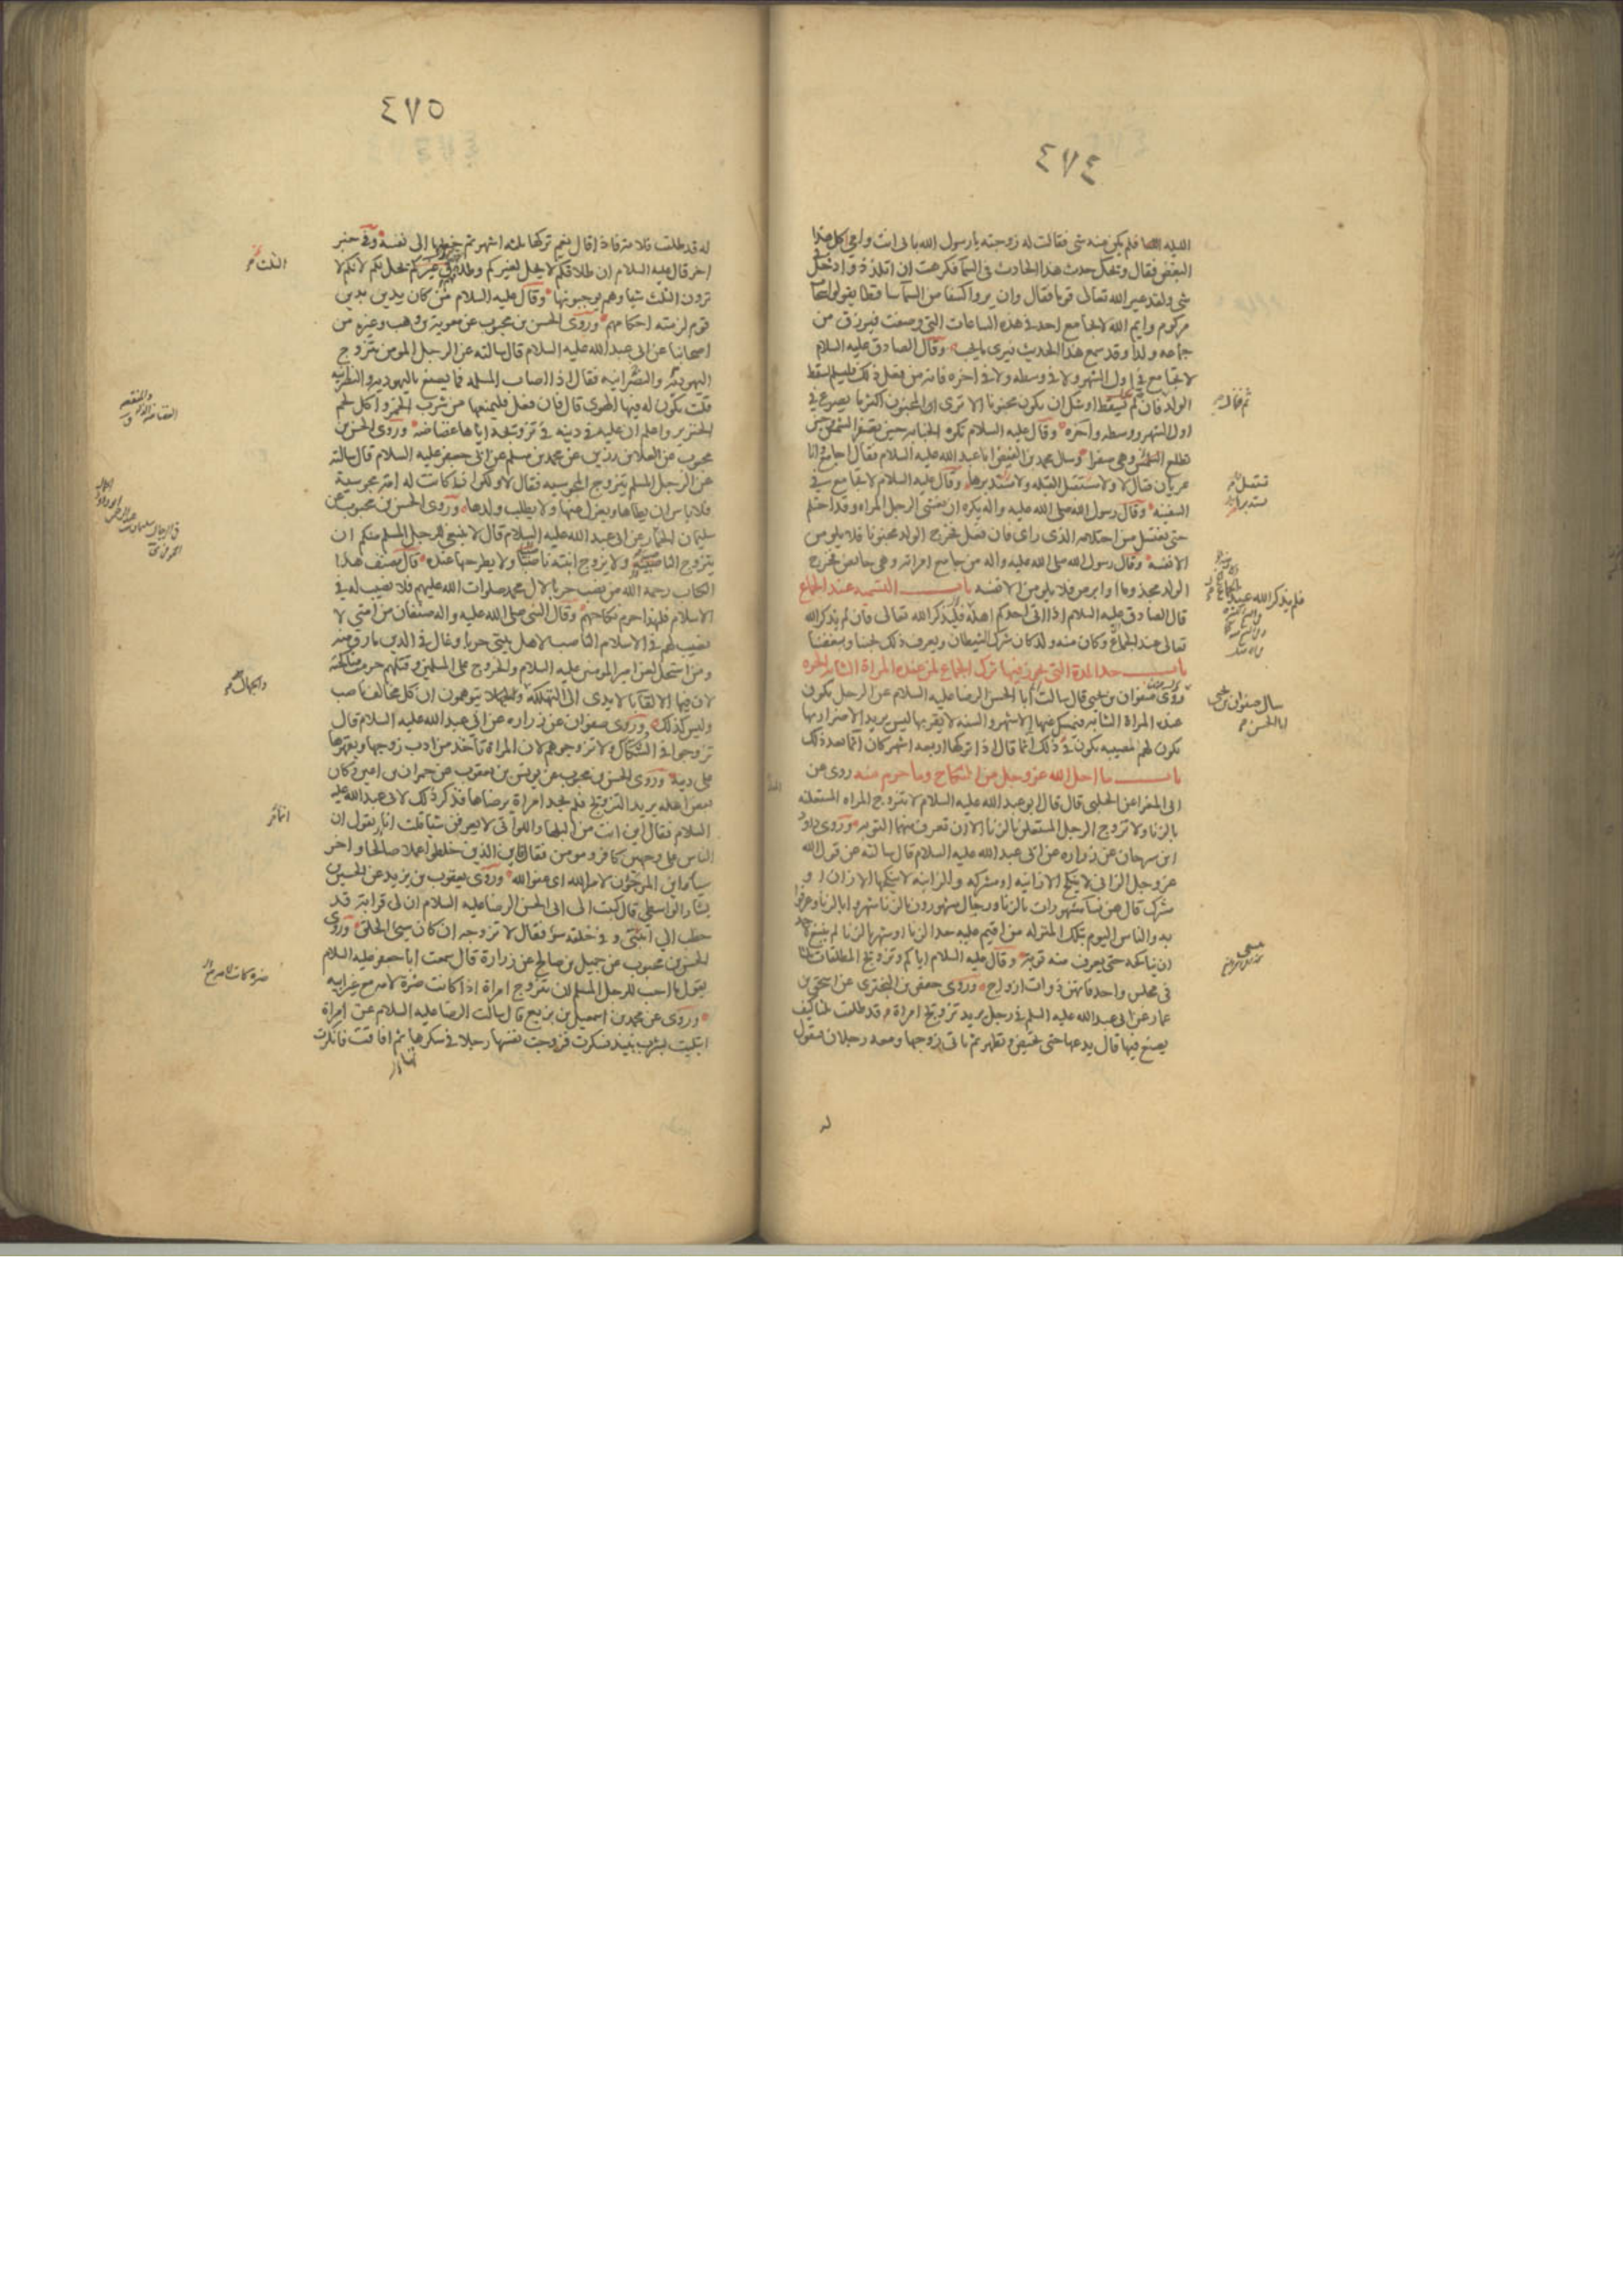 ٤٧٤
الليله شى فلم يكن منه شى فقالت له زوجته يارسول الله بابى انت وامى اكل هذا
البغض فقال ويحك حدث هذا الحادث فى السما فكرهت ان اتلذذ وادخل فى
شى ولقد عير الله تعالى قوما فقال وان يروا كسفا من السما ساقطا يقولوا سحاب
مركوم وايم الله لا يجامع احد فى هذه الساعات التى وصفت فيرزق من
جماعه ولدا وقد سمع هذا الحديث فيرى ما يحب وقال الصادق عليه السلام
لا تجامع فى اول الشهر ولا فى وسطه ولا فى اخره فانه من فعل ذلك فليسلم لسقط
الولد فان تم اوشك ان يكون مجنونا الا ترى ان المجنون اكثر ما يصرع فى
اول الشهر ووسطه واخره وقال عليه السلام تكره الجنابه حين تصفر الشمس وحين
تطلع الشمس وهى صفرا وسئل محمد بن الفيض ابا عبد الله عليه السلام فقال اجامع وانا
عريان فقال لا ولا تستقبل القبله ولا تستدبرها وقال عليه السلام لا تجامع فى
السفينه وقال رسول الله صلى الله عليه واله يكره ان يغشى الرجل المراه وقد احتلم
حتى يغتسل من احتلامه الذى راى فان فعل فخرج الولد مجنونا فلا يلومن
الا نفسه وقال رسول الله صلى الله عليه واله من جامع امراته وهى حايض فخرج
الولد مجذوما او ابرص فلا يلومن الا نفسه باب التسميه عند الجماع
قال الصادق عليه السلام اذا اتى احدكم اهله فليذكر الله تعالى فان لم يذكر الله
تعالى عند الجماع وكان منه ولد كان شرك الشيطان ويعرف ذلك بحبنا وبغضنا
باب حد المدة التى يجوز فيها ترك الجماع لمن عنده المراة الشابه الحره
وروى صفوان بن يحيى قال سالت ابا الحسن الرضا عليه السلام عن الرجل يكون
عنده المراة الشابه فيمسك عنها الاشهر والسنه لا يقربها ليس يريد الاضرار بها
يكون لهم المصيبه يكون فى ذلك اثما قال اذا تركها اربعه اشهر كان اثما بعد ذلك
باب ما احل الله عز وجل من النكاح وما حرم منه روى عن
ابى المغرا عن الحلبى قال قال ابو عبد الله عليه السلام لا تتزوج المراه المستعلنه
بالزنا ولا تزوج الرجل المستعلن بالزنا الا ان تعرف منهما التوبه وروى داود
ابن سرحان عن زراره عن ابى عبد الله عليه السلام قال سالته عن قول الله
عز وجل الزانى لا ينكح الا زانيه او مشركه والزانيه لا ينكحها الا زان او
مشرك قال هن نسا مشهورات بالزنا ورجال مشهورون بالزنا شهروا بالزنا وعرفوا
به والناس اليوم بتلك المنزله من اقيم عليه حد الزنا او شهر بالزنا لم ينبغ لاحد
ان يناكحه حتى يعرف منه توبه وقال عليه السلام اياكم وتزويج المطلقات ثلثا
فى مجلس واحد فانهن ذوات ازواج وروى حفص بن البخترى عن اسحق بن
عمار عن ابى عبد الله عليه السلم فى رجل يريد تزويج امراة قد طلقت ثلثا كيف
يصنع فيها قال يدعها حتى تحيض وتطهر ثم ياتى زوجها ومعه رجلان فيقول
له
تستقبل
تستدبر
فلم يذكر الله عند الجماع
سال صفوان بن يحيى
ابا الحسن
٤٧٥
له قد طلقت فلانه فاذا قال نعم تركها ثلثه اشهر ثم خطبها الى نفسه وفى خبر
اخر قال عليه السلام ان طلاقكم لا يحل لغيركم وطلاق غيركم يحل لكم لانكم لا
ترون الثلث شيا وهم يوجبونها وقال عليه السلام من كان يدين بدين
قوم لزمته احكامهم وروى الحسن بن محبوب عن معوية بن وهب وغيره من
اصحابنا عن ابى عبد الله عليه السلام قال سالته عن الرجل المومن يتزوج
اليهوديه والنصرانيه فقال اذا اصاب المسلمه فما يصنع باليهوديه والنصرانيه
قلت يكون له فيها الهوى قال فان فعل فليمنعها من شرب الخمر واكل لحم
الخنزير واعلم ان عليه فى دينه فى تزويجه اياها غضاضه وروى الحسن بن
محبوب عن العلا بن رزين عن محمد بن مسلم عن ابى جعفر عليه السلام قال سالته
عن الرجل المسلم يتزوج المجوسيه فقال لا ولكن ان كانت له امه مجوسية
فلا باس ان يطاها ويعزل عنها ولا يطلب ولدها وروى الحسن بن محبوب عن
سليمان الحمار عن ابى عبد الله عليه السلام قال لا ينبغى للرجل المسلم منكم ان
يتزوج الناصبيه ولا يزوج ابنته ناصبيا ولا يطرحها عنده قال مصنف هذا
الكتاب رحمة الله من نصب حربا لال محمد صلوات الله عليهم فلا نصيب له فى
الاسلام فلهذا حرم نكاحهم وقال النبى صلى الله عليه واله صنفان من امتى لا
نصيب لهم فى الاسلام الناصب لاهل بيتى حربا وغال فى الدين مارق منه
ومن استحل لعن امير المومنين عليه السلام والخروج على المسلمين وقتلهم حرمت مناكحته
لان فيها الالقا بالايدى الى التهلكه والجهلا يتوهمون ان كل مخالف ناصب
وليس كذلك وروى صفوان عن زراره عن ابى عبد الله عليه السلام قال
تزوجوا فى الشكاك ولا تزوجوهم لان المراة تاخذ من ادب زوجها ويقهرها
على دينه وروى الحسن بن محبوب عن يونس بن يعقوب عن حمران بن اعين وكان
بعض اهله يريد التزويج فلم يجد امراة يرضاها فذكر ذلك لابى عبد الله عليه
السلام فقال اين انت من البلها واللواتى لا يعرفن شيا قلت انا نقول ان
الناس على وجهين كافر ومومن فقال فاين الذين خلطوا عملا صالحا واخر
سيا واين المرجون لامر الله اى عفو الله وروى يعقوب بن يزيد عن الحسين بن
بشار الواسطى قال كتبت الى ابى الحسن الرضا عليه السلام ان لى قرابة قد
خطب الى ابنتى وفى خلقه سؤ فقال لا تزوجه ان كان سيئ الخلق وروى
الحسن بن محبوب عن جميل بن صالح عن زرارة قال سمعت ابا جعفر عليه السلام
يقول ما احب للرجل المسلم ان يتزوج امراة اذا كانت ضرة لامه مع غير ابيه
وروى عن محمد بن اسمعيل بن بزيع قال سالت الرضا عليه السلام عن امراة
ابتليت بشرب نبيذ فسكرت فزوجت نفسها رجلا فى سكرها ثم افاقت فانكرت
الثلث
والجهال
ضرة كانت لامه مع